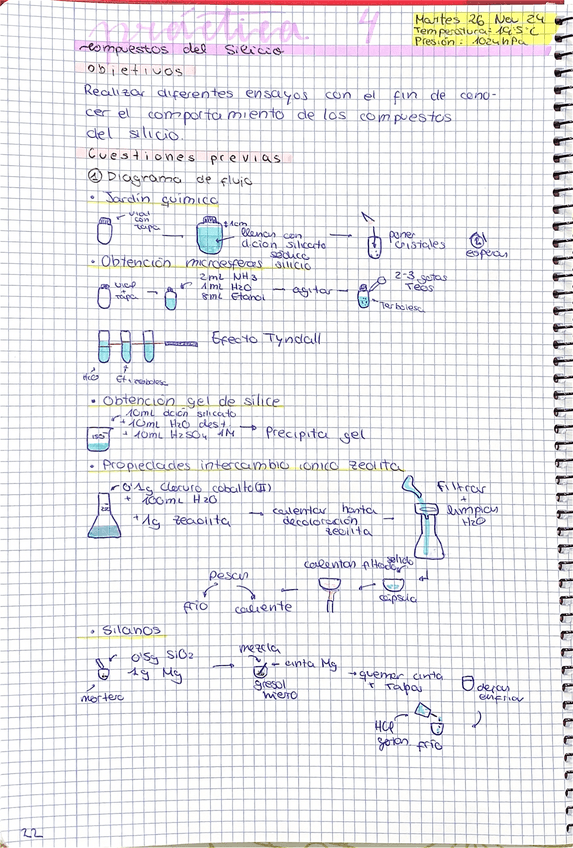 práctica 4
Martes 26 Nov 24
Temperatura: 19'5ºC
Presión: 1024hPa
compuestos del silicio
objetivos
Realizar diferentes ensayos con el fin de cono-
cer el comportamiento de los compuestos
del silicio.
Cuestiones previas
① Diagrama de flujo
· Jardín químico
vial
con
tapa
1cm
llenar con
dción silicato
sódico
poner
cristales
esperar
· Obtención microesferas silicio
vial
tapa
2mL NH3
1mL H2O
8mL Etanol
agitar
2-3 gotas
TEOS
Turbidez
Efecto Tyndall
H2O
Et
· Obtención gel de sílice
10mL dción silicato
+ 10mL H2O dest
+ 10mL H2SO4 1M
Precipita gel
· Propiedades intercambio iónico zeolita
0'1g cloruro cobalto(II)
+ 100mL H2O
+ 1g zeolita
calentar hasta
decoloración
zeolita
filtrar
+
limpiar
H2O
sólido
cápsula
calentar
pesar
frío
caliente
· Silanos
0'5g SiO2
1g Mg
mortero
mezcla
cinta Mg
crisol
hierro
quemar cinta
+ tapar
dejar
enfriar
HCl
gotas
frío
22